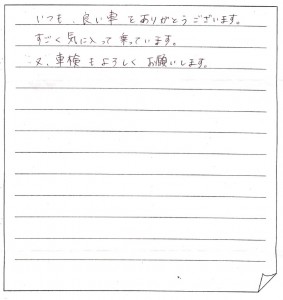 いつも、良い車をありがとうございます。
すごく気に入って乗っています。
又、車検もよろしくお願いします。